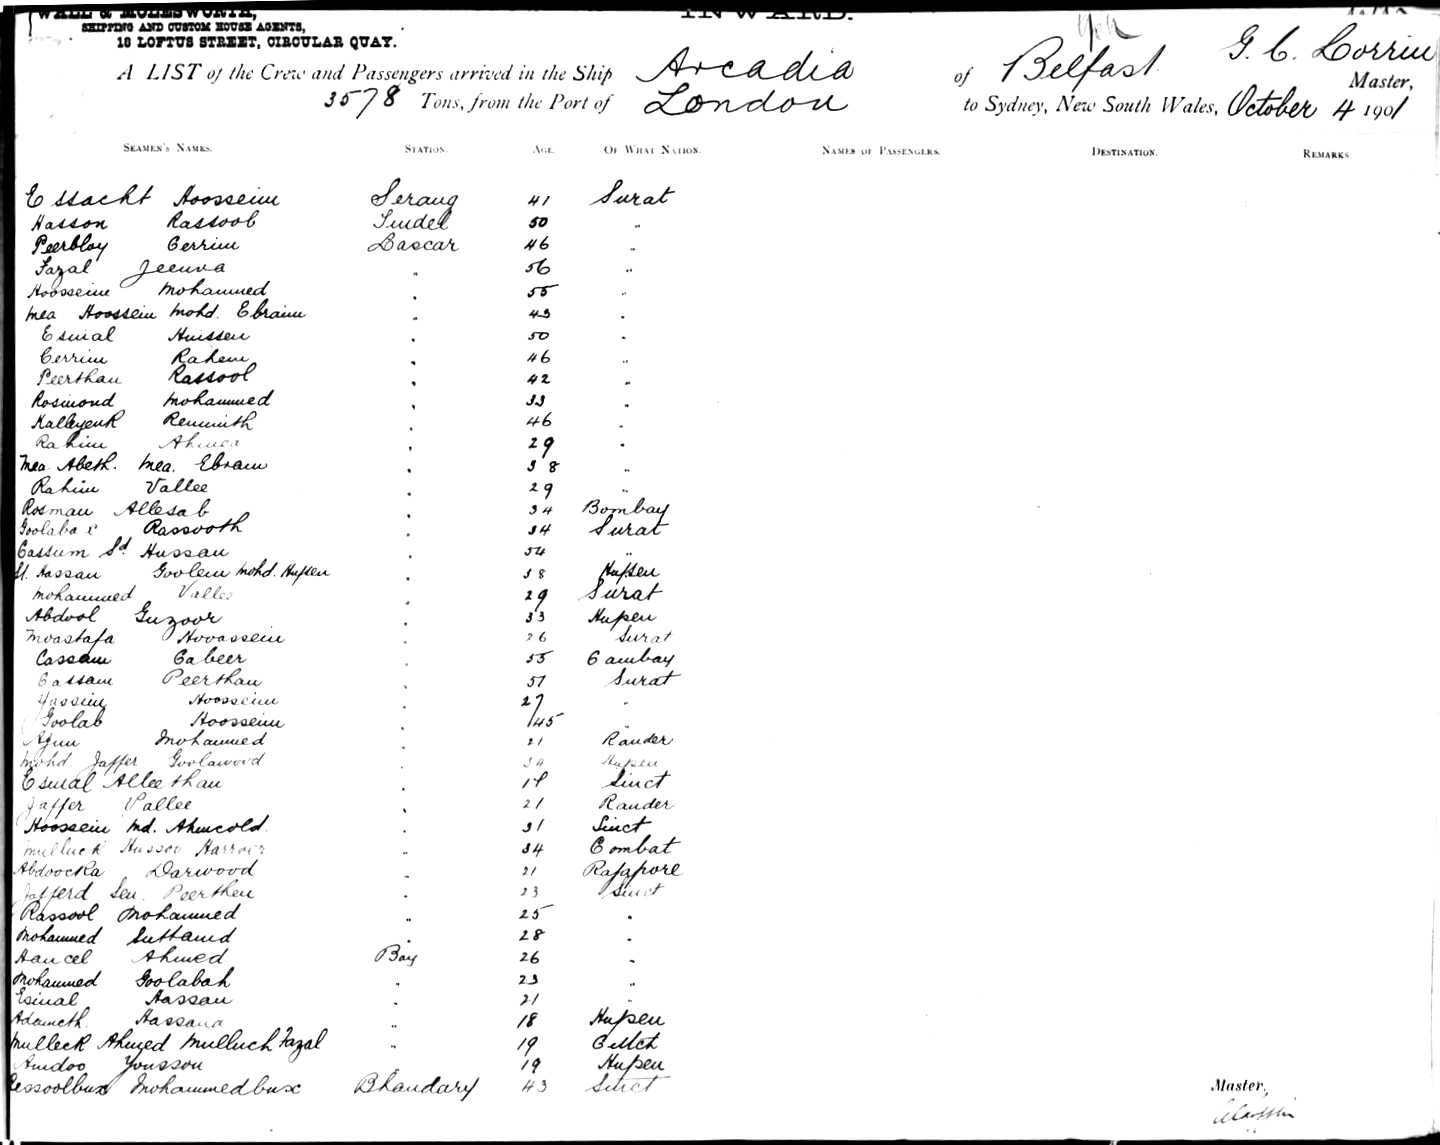 WALL & MOLESWORTH,
SHIPPING AND CUSTOM HOUSE AGENTS,
10 LOFTUS STREET, CIRCULAR QUAY.
INWARD.
A LIST of the Crew and Passengers arrived in the Ship Arcadia of Belfast G. C. Lorrin Master,
3578 Tons, from the Port of London to Sydney, New South Wales, October 4 1901
SEAMEN'S NAMES. STATION. AGE. OF WHAT NATION. NAMES OF PASSENGERS. DESTINATION. REMARKS
Essacht Hoosseim Serang 41 Surat
Hasson Rassoob Tindel 50 "
Peerbloy Cerrim Lascar 46 "
Fazal Jeeuva " 56 "
Hoosseim Mohammed " 55 "
Mea Hoossein Mohd. Ebraim " 43 "
Esmal Hussen " 50 "
Cerrim Rahem " 46 "
Peerthan Rassool " 42 "
Rosmond Mohammed " 33 "
Kalleyenk " 46 "
Rahim " 29 "
Mea Abeth. Mea. Ebram " 38 "
Rahim Vallee " 29 "
Rosman Allesab " 34 Bombay
Rassooth " 34 Surat
Cassum Sd Hussan 54 "
St. Hassan Goolem Mohd. Hupsen " 38 Hupsen
Mohammed Vallee " 29 Surat
Abdool Guzoor " 33 Hupen
Moastafa Hooassein " 26 Surat
Cassam Cabeer " 55 Cambay
Cassam Peerthan " 51 Surat
Yassim Hoosseim " 27 "
Goolab Hoosseim " 45 "
Mohammed " 21 Rander
Mohd Jaffer Goolawood " 34 Hupen
Esmal Alleethan " Sinct
Jaffer Vallee " 21 Rander
Hoossein Md. Ahmcold. " 31 Sinct
Mulluck Hussov " 34 Combat
Abdoocka Darwood " 21 Rajapore
Jafferd Sen. Peerthen " 23 Sinct
Rassool Mohammed " 25 "
Mohammed Suttamd " 28 "
Hancel Ahmed Boy 26 "
Mohammed Goolabah " 23 "
Esmal Hassan " 21 "
Adamcth. Hassana " 18 Hupsen
Mulleck Ahmed Mulluch Fazal " 19 Cutch
Amdoo Yousson 19 Hupen
Ressoolbux Mohammedbux Bhandary 43 Sinct
Master,